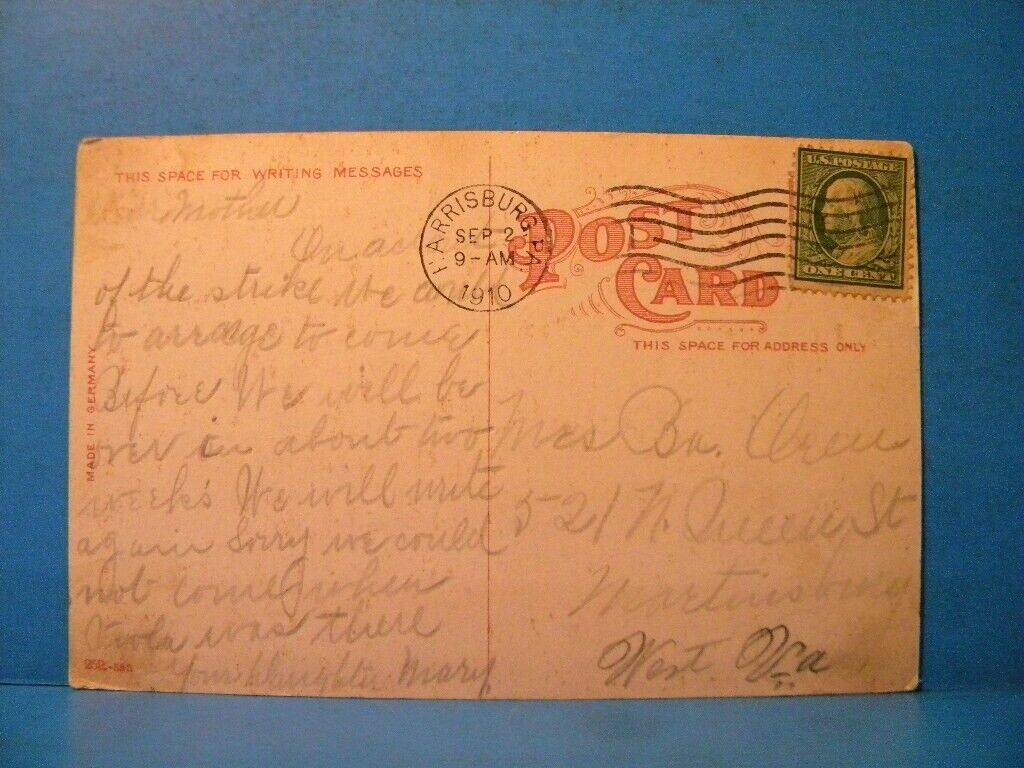 THIS SPACE FOR WRITING MESSAGES
Dear Mother
On ac
of the strike We
to arrage to come
Before We will be
over in about two
weeks We will write
again Sorry we could
not come when
Viola was there
Your Daughter Mary
MADE IN GERMANY
252.-585
HARRISBURG, PA.
SEP 2
9-AM
1910
POST CARD
THIS SPACE FOR ADDRESS ONLY
U.S. POSTAGE
ONE CENT
Mrs
521 N Queen St
Martinsburg
West Va